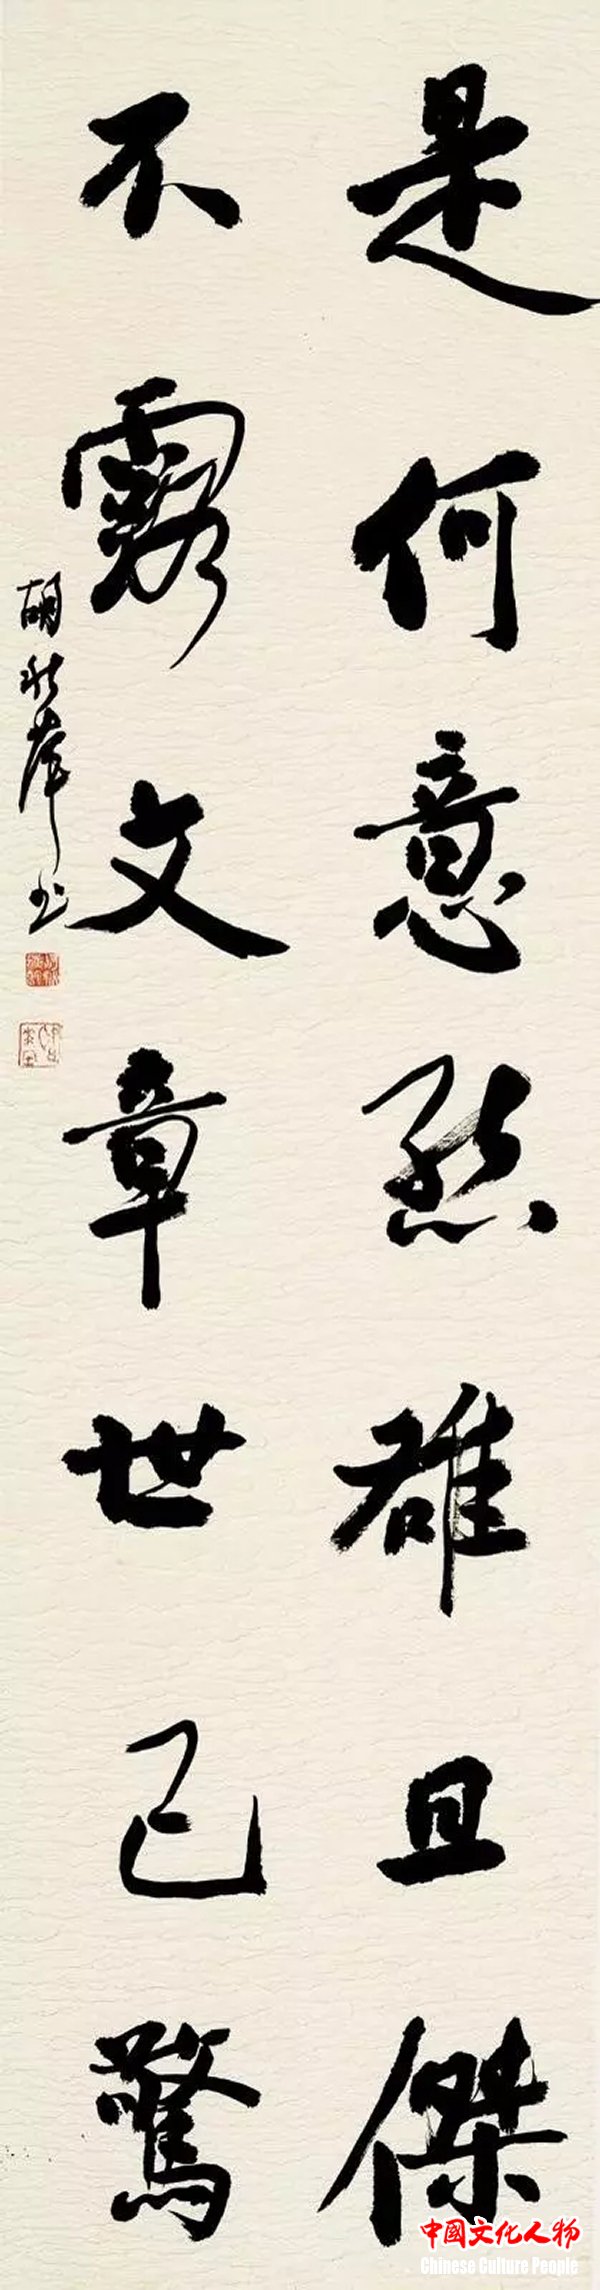 是何意態雄且傑
不露文章世已驚
胡秋萍书
中國文化人物
Chinese Culture People